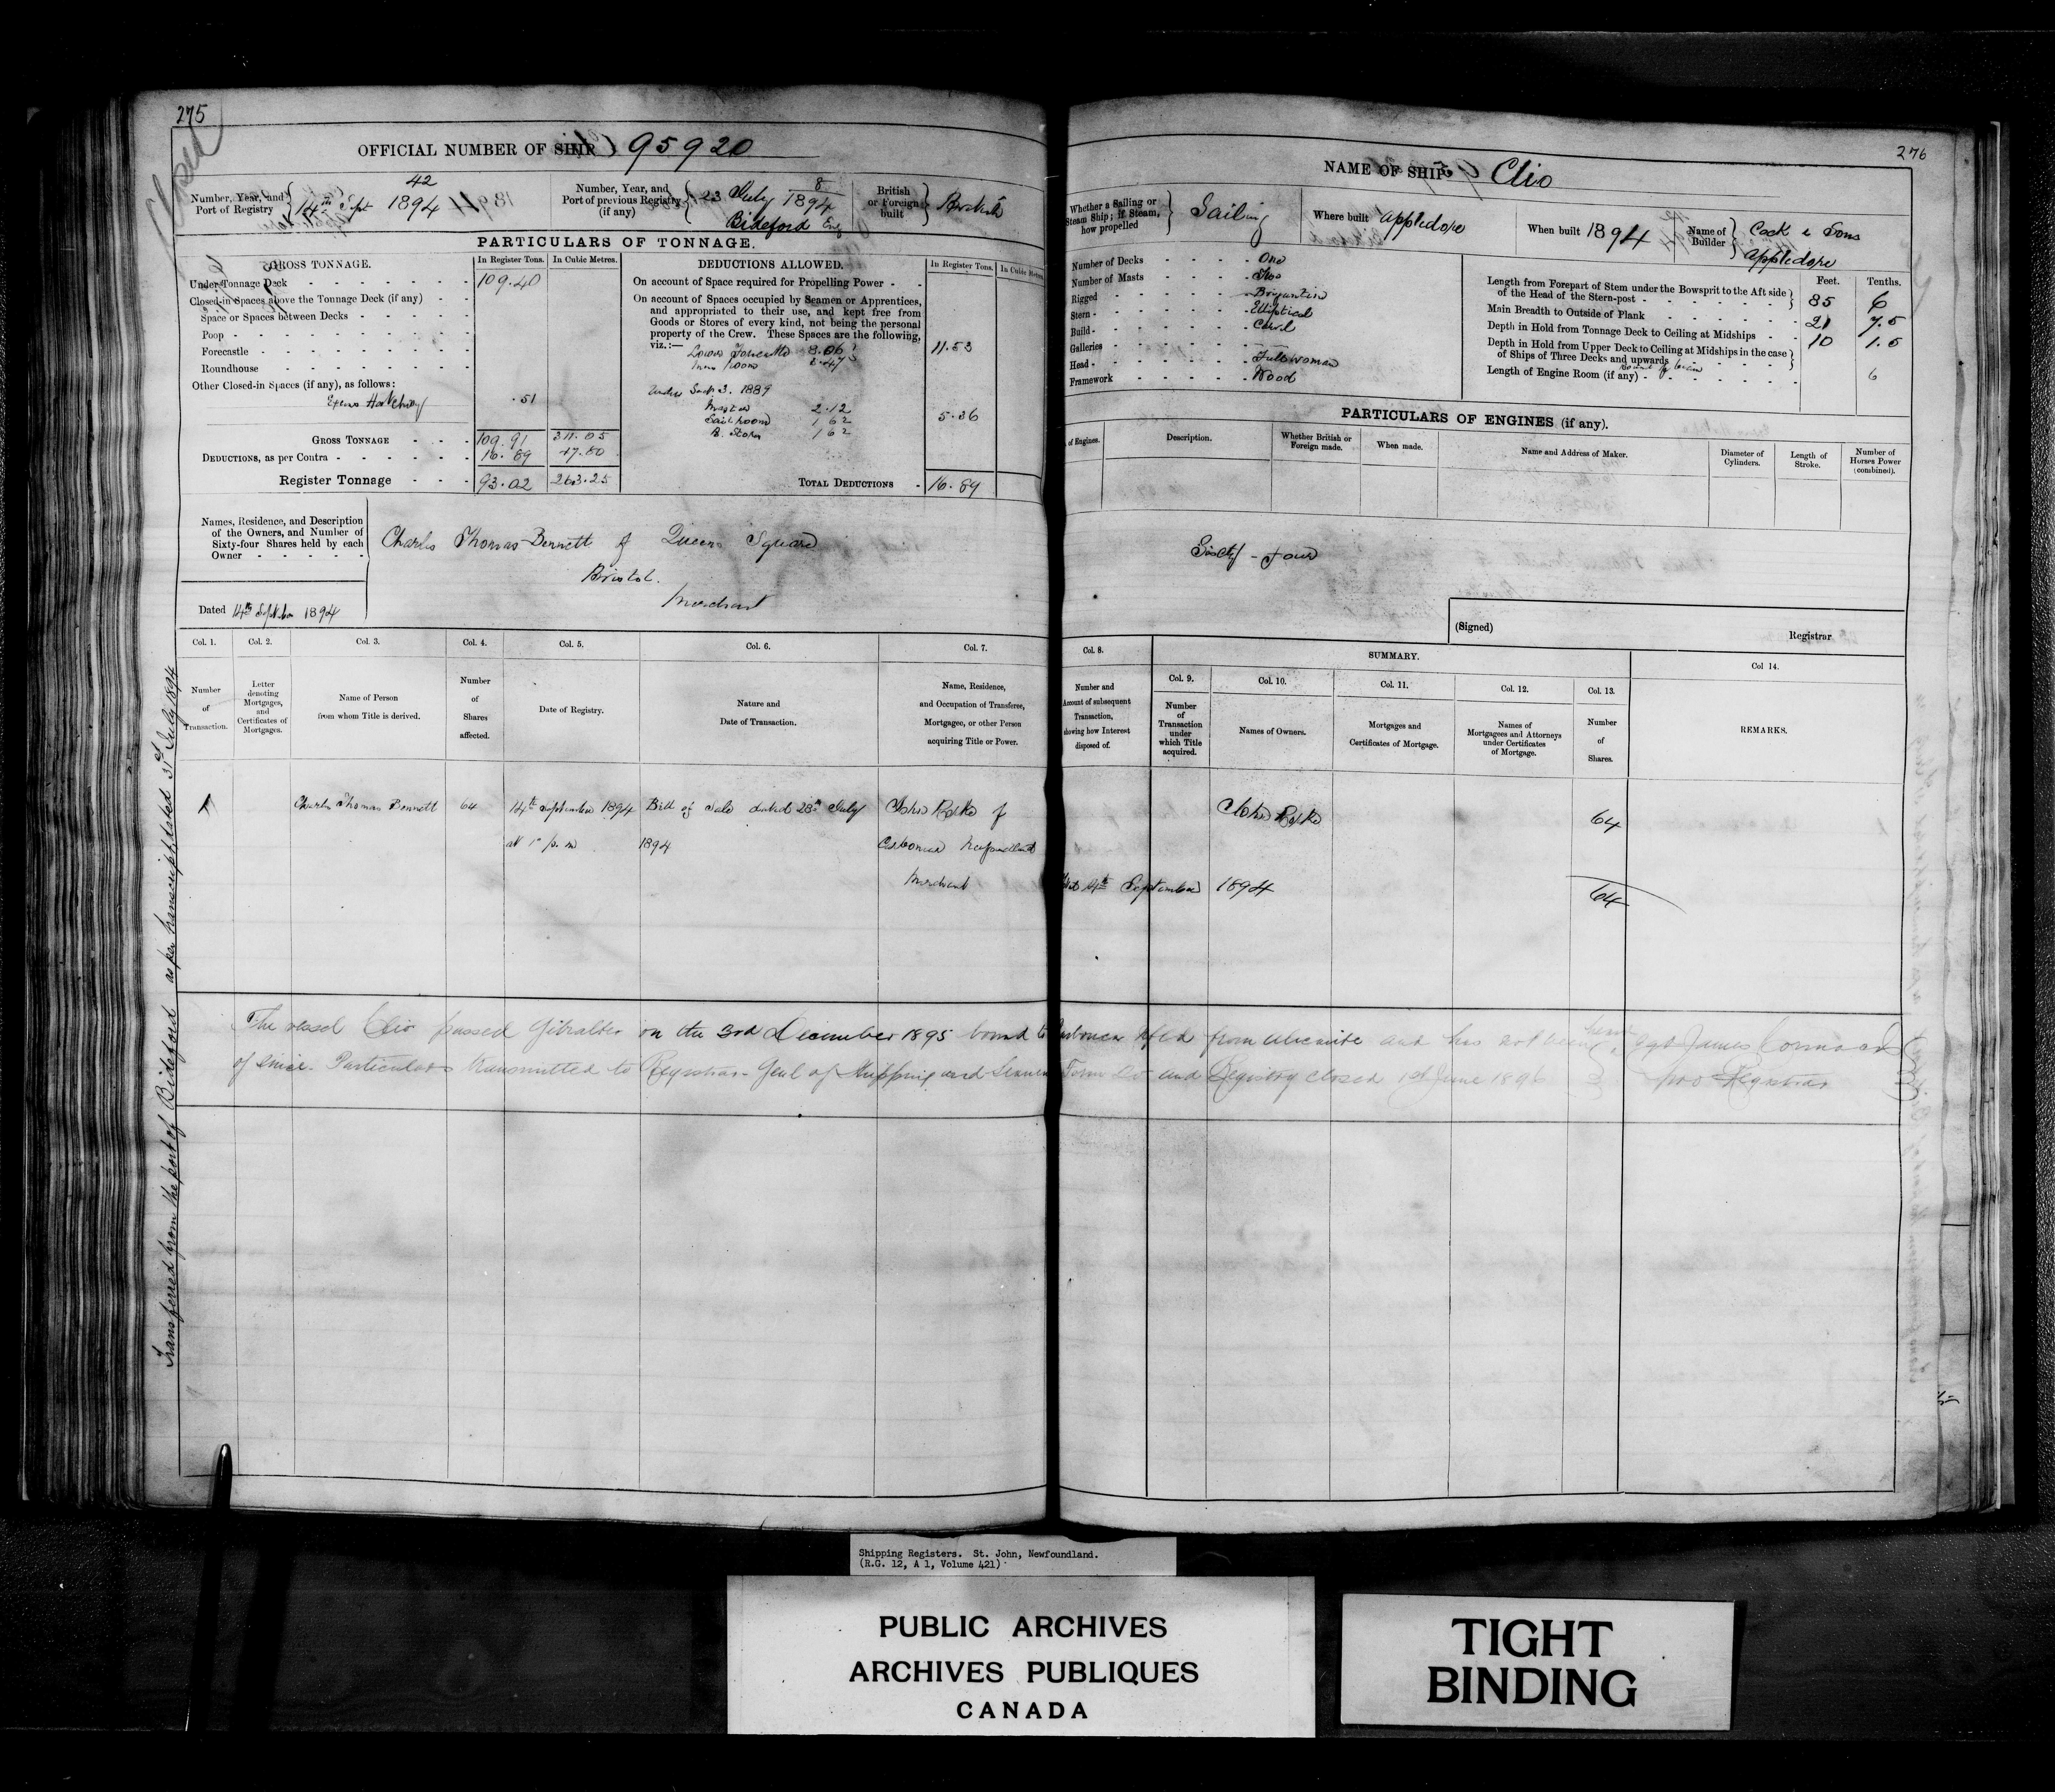 275
Closed
OFFICIAL NUMBER OF SHIP 95920
Number, Year, and Port of Registry 42 14th Sept 1894
Number, Year, and Port of previous Registry (if any) 8 23 July 1894 Bideford Eng
British or Foreign built British
PARTICULARS OF TONNAGE.
GROSS TONNAGE. In Register Tons. In Cubic Metres.
Under Tonnage Deck 109.40
Closed-in Spaces above the Tonnage Deck (if any)
Space or Spaces between Decks
Poop
Forecastle
Roundhouse
Other Closed-in Spaces (if any), as follows:
Excess Hatchway .51
GROSS TONNAGE 109.91 311.05
DEDUCTIONS, as per Contra 16.89 47.80
Register Tonnage 93.02 263.25
DEDUCTIONS ALLOWED. In Register Tons. In Cubic Metres
On account of Space required for Propelling Power
On account of Spaces occupied by Seamen or Apprentices,
and appropriated to their use, and kept free from
Goods or Stores of every kind, not being the personal
property of the Crew. These Spaces are the following,
viz.:—
Lower Forecastle 8.06
room 3.47
11.53
Under Sect. 3. 1889
Master 2.12
Sail room 1 62
B. Store 1 62
5.36
TOTAL DEDUCTIONS 16.89
Names, Residence, and Description
of the Owners, and Number of
Sixty-four Shares held by each
Owner
Dated 14th September 1894
Charles Thomas Bennett of Queens Square
Bristol.
Merchant
Col. 1. Col. 2. Col. 3. Col. 4. Col. 5. Col. 6. Col. 7.
Number of Transaction.
Letter denoting Mortgages, and Certificates of Mortgages.
Name of Person from whom Title is derived.
Number of Shares affected.
Date of Registry.
Nature and Date of Transaction.
Name, Residence, and Occupation of Transferee, Mortgagee, or other Person acquiring Title or Power.
Charles Thomas Bennett 64 14th September 1894 Bill of Sale dated 28th July John Rorke of
at 1 p.m 1894 Carbonear Newfoundland
Merchant
Transferred from the port of Bideford as per transcript dated 31st July 1894
276
NAME OF SHIP Clio
Whether a Sailing or Steam Ship; if Steam, how propelled Sailing
Where built Appledore
When built 1894
Name of Builder Cock & Sons Appledore
Number of Decks One
Number of Masts Two
Rigged Brigantine
Stern Elliptical
Build Carvel
Galleries
Head Full woman
Framework Wood
Feet. Tenths.
Length from Forepart of Stem under the Bowsprit to the Aft side of the Head of the Stern-post 85 6
Main Breadth to Outside of Plank 21 7.5
Depth in Hold from Tonnage Deck to Ceiling at Midships 10 1.5
Depth in Hold from Upper Deck to Ceiling at Midships in the case of Ships of Three Decks and upwards
Round of beam 6
Length of Engine Room (if any)
PARTICULARS OF ENGINES (if any).
of Engines. Description. Whether British or Foreign made. When made. Name and Address of Maker. Diameter of Cylinders. Length of Stroke. Number of Horses Power (combined).
Sixty-four
(Signed) Registrar
Col. 8. SUMMARY. Col 14.
Col. 9. Col. 10. Col. 11. Col. 12. Col. 13.
Number and Account of subsequent Transaction, showing how Interest disposed of.
Number of Transaction under which Title acquired.
Names of Owners.
Mortgages and Certificates of Mortgage.
Names of Mortgagees and Attorneys under Certificates of Mortgage.
Number of Shares.
REMARKS.
John Rorke 64
14th September 1894 64
The vessel Clio passed Gibraltar on the 3rd December 1895 bound to Carbonear Nfld from Alicante and has not been heard
of since. Particulars transmitted to Registrar-Genl of Shipping and Seamen Form 20 and Registry closed 1st June 1896
Sgd James Cormack
pro Registrar
Shipping Registers. St. John, Newfoundland.
(R.G. 12, A 1, Volume 421)
PUBLIC ARCHIVES
ARCHIVES PUBLIQUES
CANADA
TIGHT
BINDING